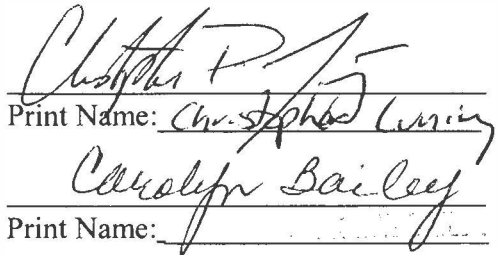 Christopher P.
Print Name: Christopher Luning
Carolyn Bailey
Print Name: